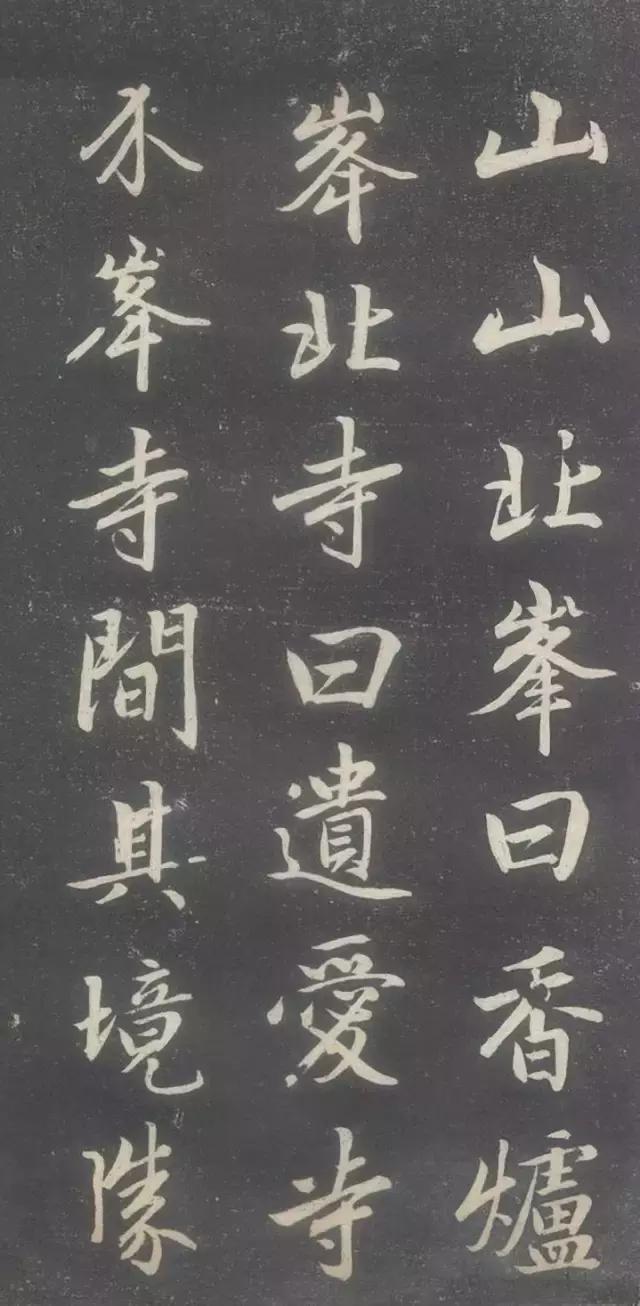 山山北峯曰香爐
峯北寺曰遺愛寺
介峯寺間其境勝